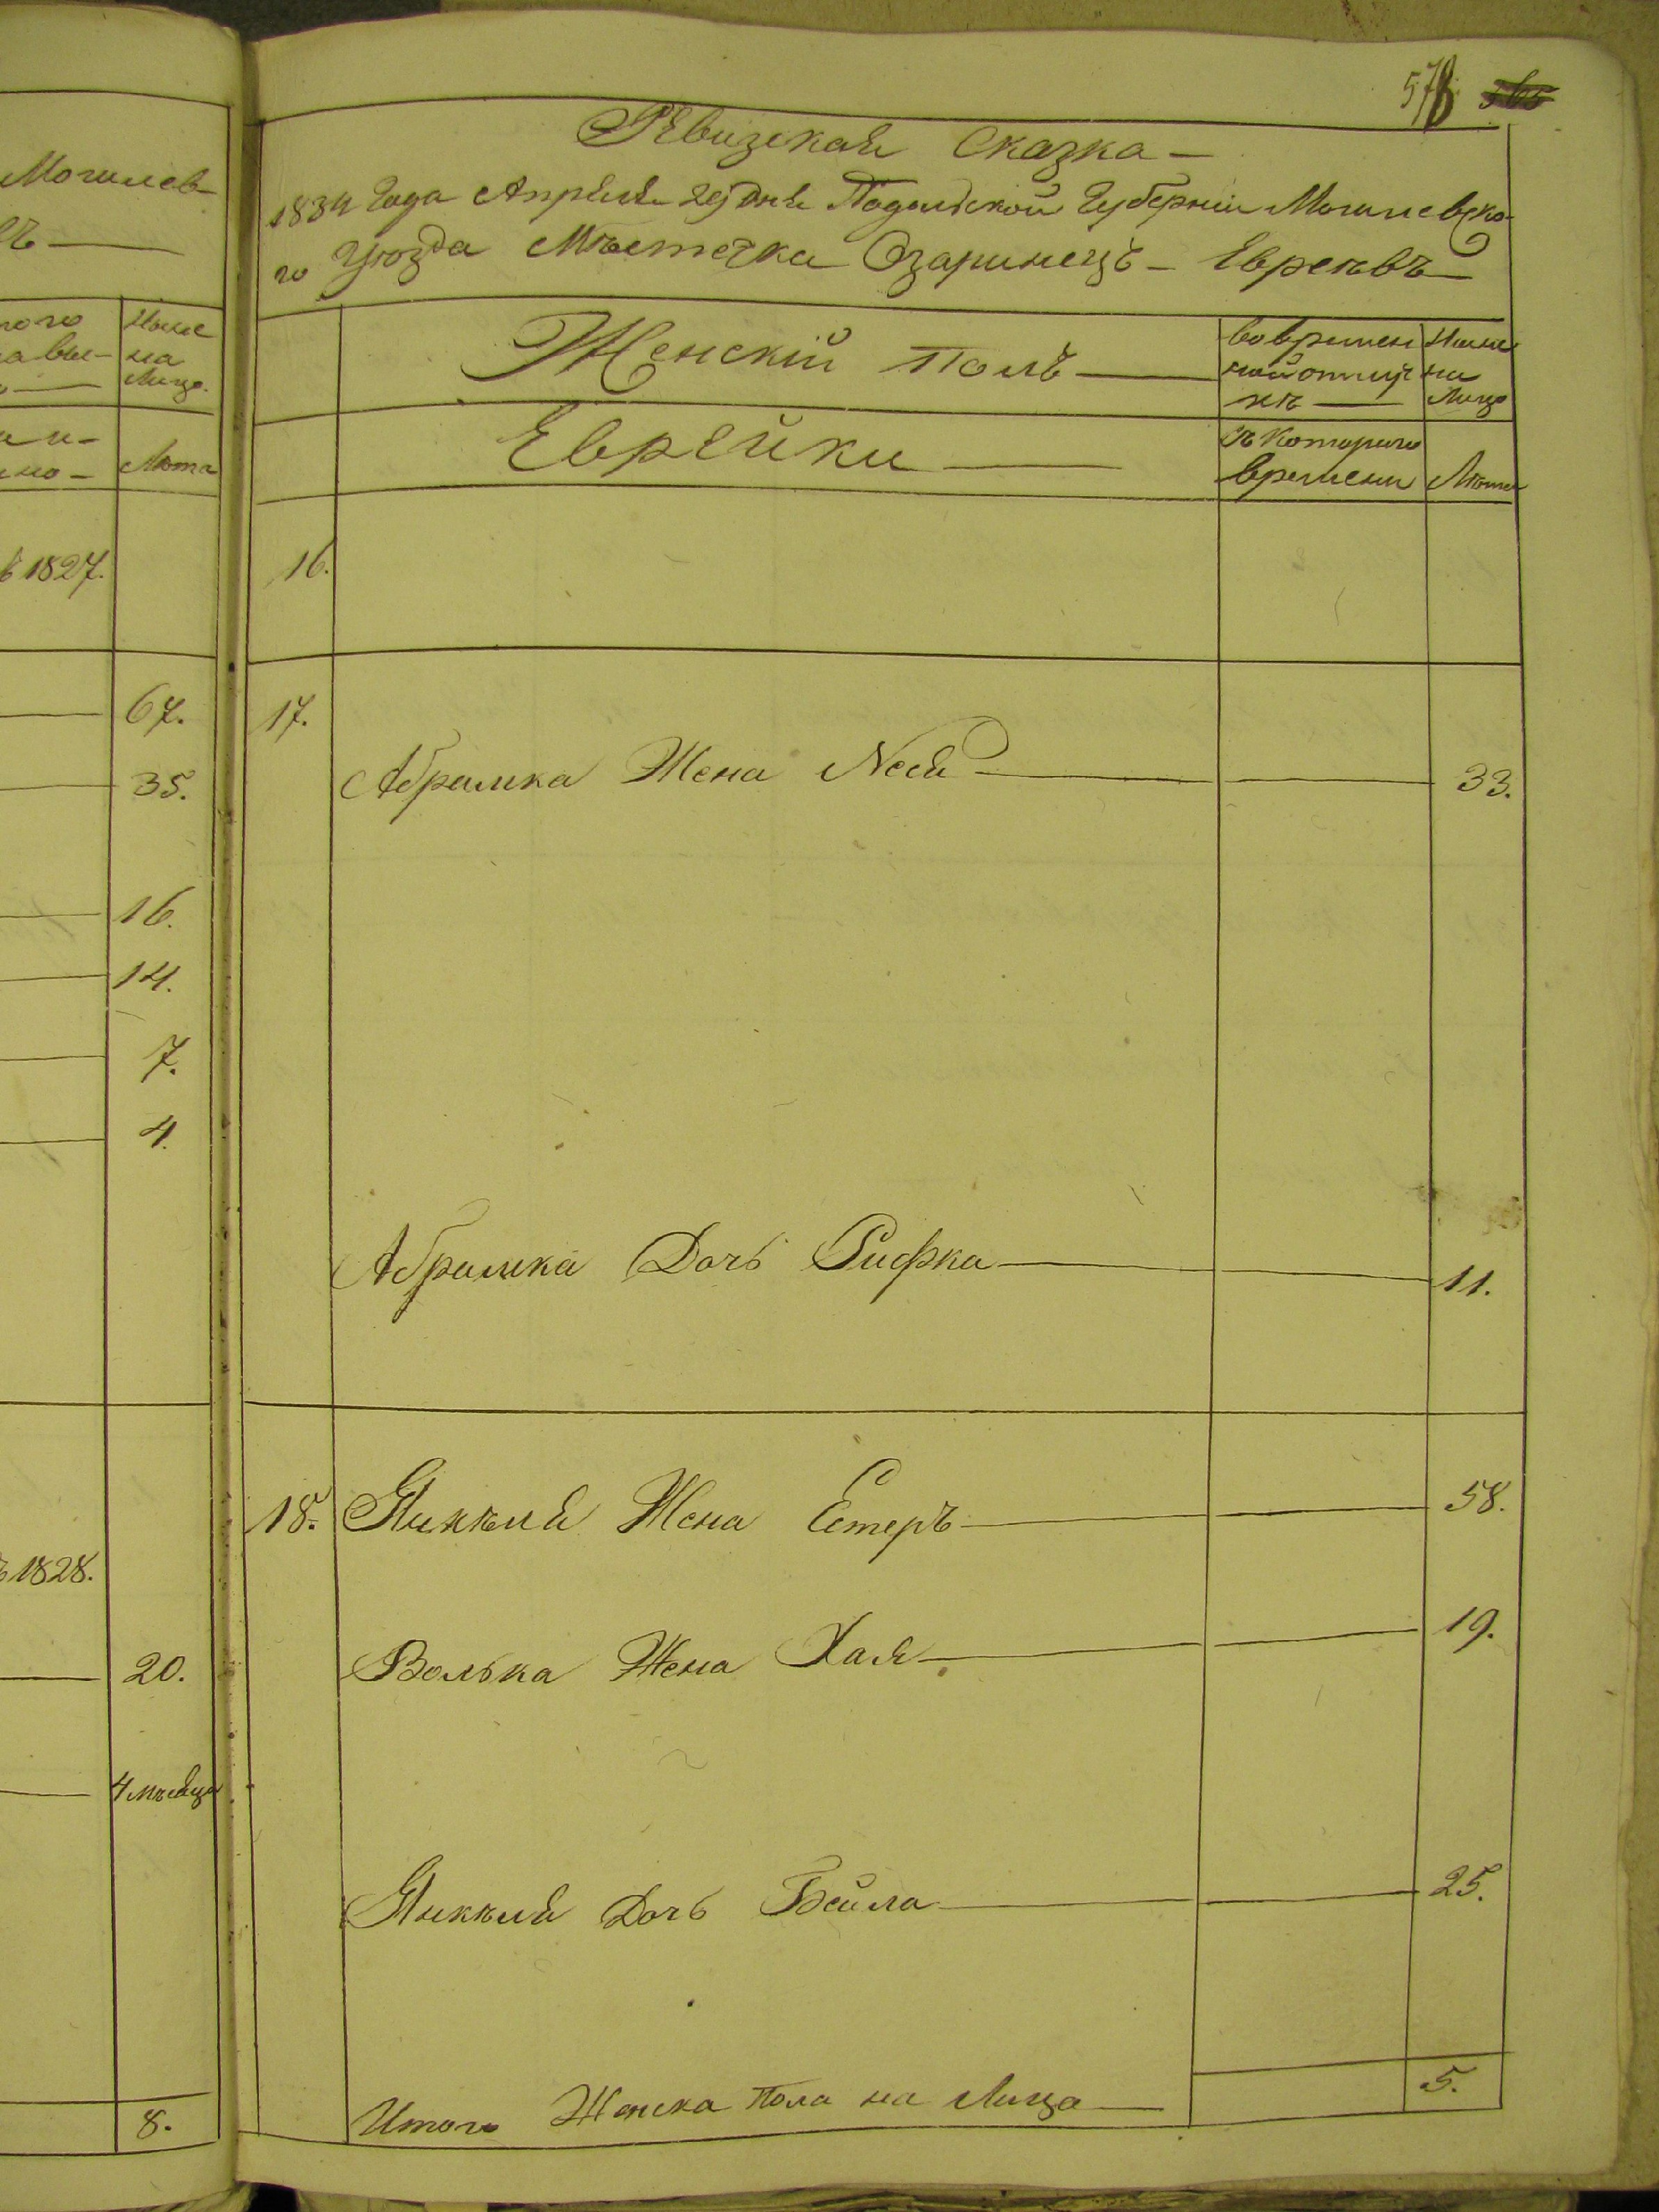 Могилев-
ъ —
ного
на вы-
Ныне
на
Лицо.
Лѣта
ъ 1827.
67.
35.
16.
14.
7.
4.
ъ 1828.
20.
4 мѣсяца
8.
578 565
Ревизская Сказка —
1834 Года Апреля 29 дня Подольской Губерніи Могилевско-
го Уѣзда Мѣстечка Озаринецъ — Евреевъ —
Женскій Полъ —
во времен
ной отлуч
кѣ —
Ныне
на
Лицо
Еврейки —
съ Котораго
времени
Лѣта
16.
17.
Абрамка Жена Неся — 33.
Абрамка Дочь Рифка — 11.
18. Янкеля Жена Естеръ — 58.
Волька Жена Хая — 19.
Янкеля Дочь Бейла — 25.
Итого Женска Пола на Лицо — 5.